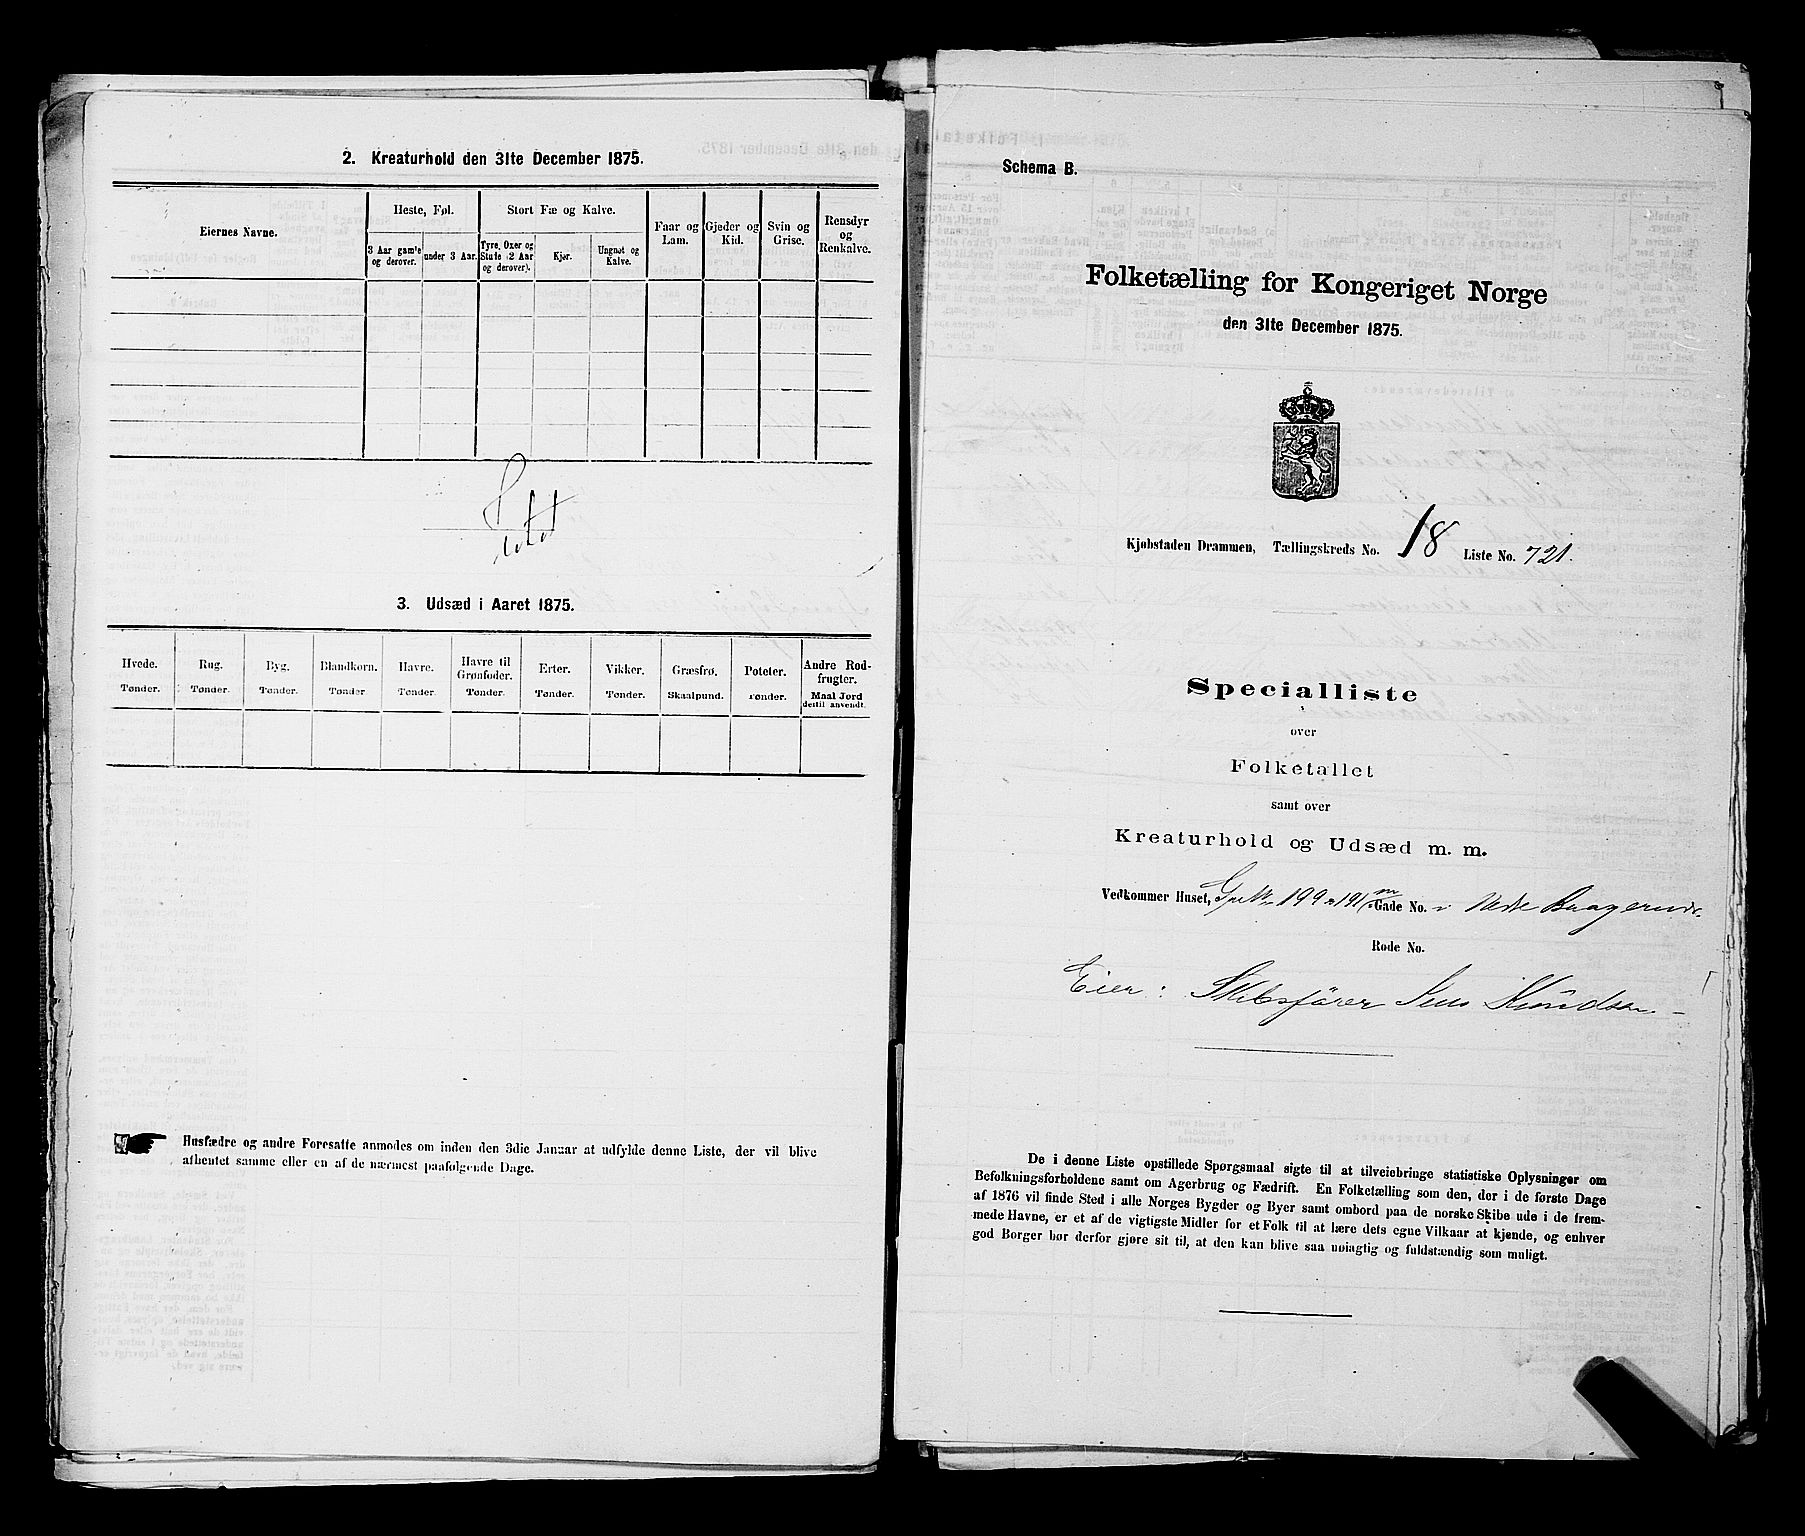 2. Kreaturhold den 31te December 1875.
Eiernes Navne.
Heste, Føl.
Stort Fæ og Kalve.
Faar og Lam.
Gjeder og Kid.
Svin og Grise.
Rensdyr og Renkalve.
3 Aar gamle og derover.
under 3 Aar.
Tyre, Oxer og Stute (2 Aar og derover).
Kjør.
Ungnøt og Kalve.
3. Udsæd i Aaret 1875.
Hvede. Rug. Byg. Blandkorn. Havre. Havre til Grønfoder. Erter. Vikker. Græsfrø. Poteter. Andre Rodfrugter.
Tønder. Tønder. Tønder. Tønder Tønder. Tønder. Tønder. Tønder. Skaalpund. Tønder. Maal Jord dertil anvendt.
Husfædre og andre Foresatte anmodes om inden den 3die Januar at udfylde denne Liste, der vil blive
afhentet samme eller en af de nærmest paafølgende Dage.
Schema B.
Folketælling for Kongeriget Norge
den 31te December 1875.
Kjøbstaden Drammen, Tællingskreds No. 18 Liste No. 721.
Specialliste
over
Folketallet
samt over
Kreaturhold og Udsæd m. m.
Vedkommer Huset, 199 Gade No. i Nedre
Rode No.
Eier: Skibsfører Jens Knudsen
De i denne Liste opstillede Spørgsmaal sigte til at tilveiebringe statistiske Oplysninger om
Befolkningsforholdene samt om Agerbrug og Fædrift. En Folketælling som den, der i de første Dage
af 1876 vil finde Sted i alle Norges Bygder og Byer samt ombord paa de norske Skibe ude i de frem-
mede Havne, er et af de vigtigste Midler for et Folk til at lære dets egne Vilkaar at kjende, og enhver
god Borger bør derfor gjøre sit til, at den kan blive saa nøiagtig og fuldstændig som muligt.